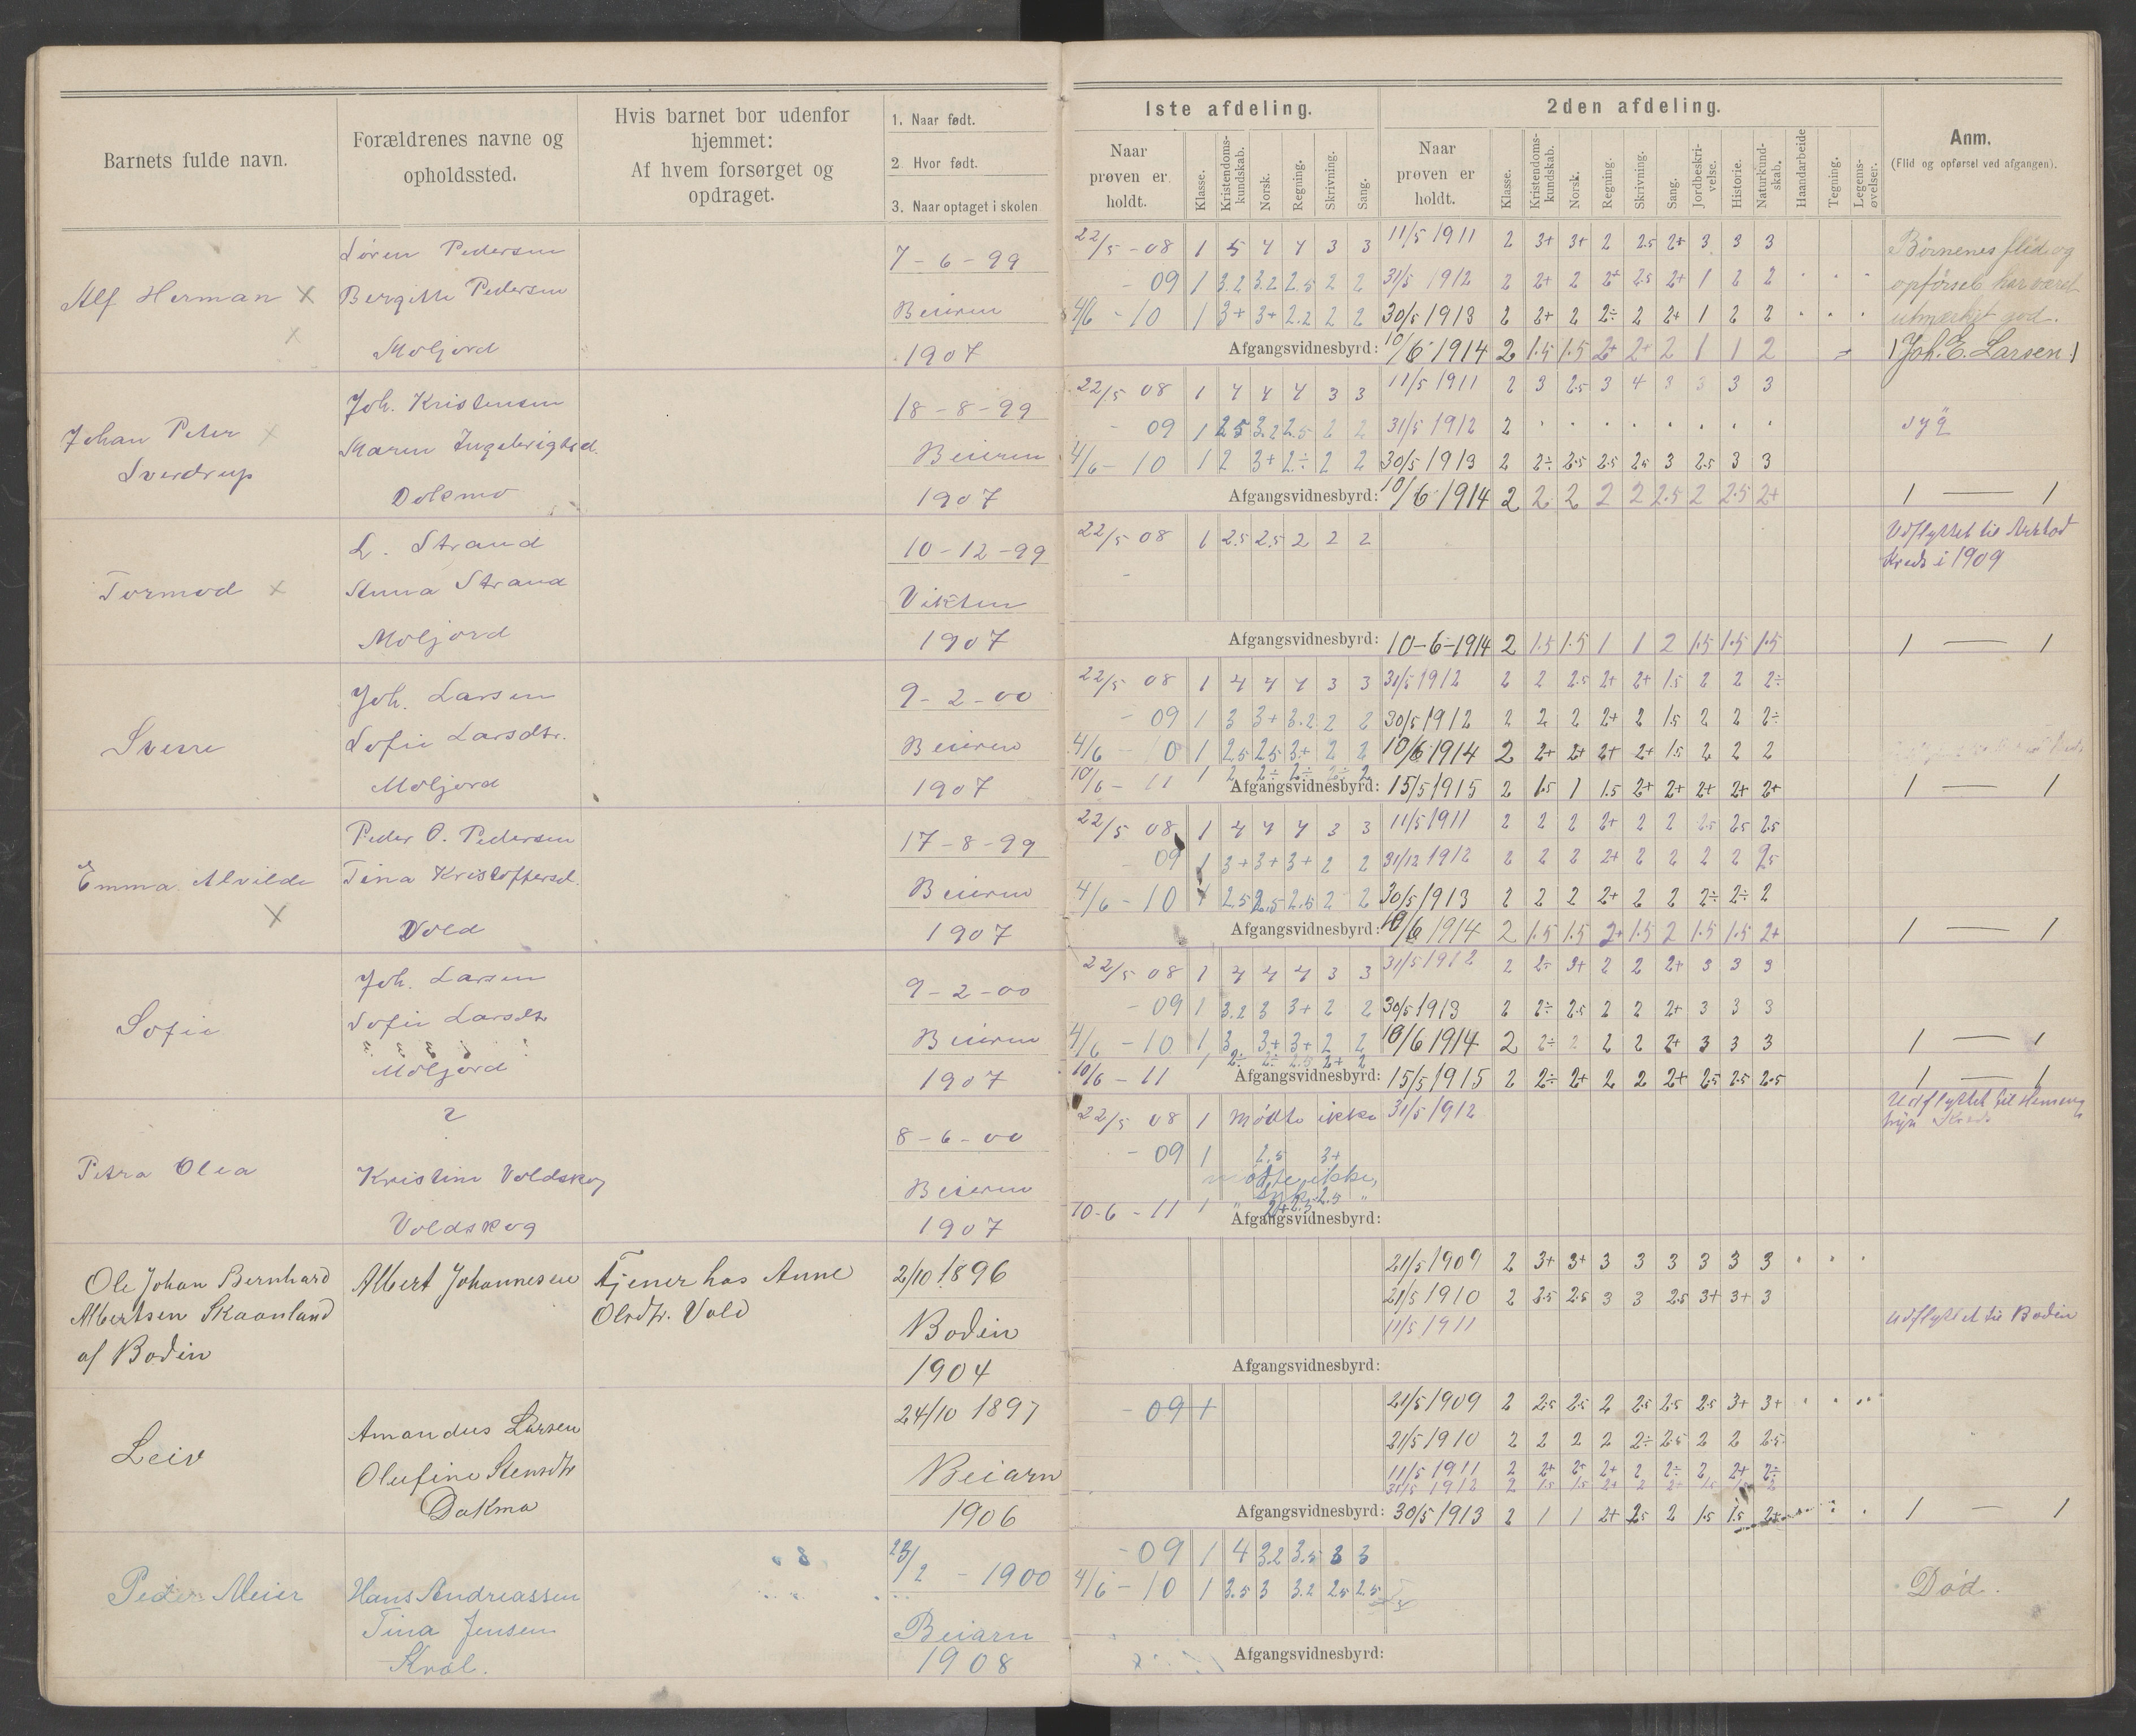 Barnets fulde navn.
Forældrenes navne og
opholdssted.
Hvis barnet bor udenfor
hjemmet:
Af hvem forsørget og
opdraget.
1. Naar født.
2 Hvor født.
3. Naar optaget i skolen
1ste afdeling.
Naar
prøven er
holdt.
Klasse.
Kristendoms-
kundskab.
Norsk.
Regning.
Skrivning.
Sang.
2den afdeling.
Naar
prøven er
holdt.
Klasse.
Kristendoms-
kundskab.
Norsk.
Regning.
Skrivning.
Sang.
Jordbeskri-
velse.
Historie.
Naturkund-
skab.
Haandarbeide
Tegning.
Legems-
øvelser.
Anm.
(Flid og opførsel ved afgangen).
Alf Herman ×
Søren Pedersen
Bergitte Pedersen
Moljord
7-6-99
Beieren
1907
22/5-08 1 5 4 4 3 3 11/5 1911 2 3+ 3+ 2 2.5 2+ 3 3 3
- 09 1 3.2 3.2 2.5 2 2 31/5 1912 2 2+ 2 2+ 2.5 2+ 1 2 2
4/6 - 10 1 3+ 3+ 2.2 2 2 30/5 1913 2 2+ 2 2÷ 2 2+ 1 2 2
Afgangsvidnesbyrd: 10/6 1914 2 1.5 1.5 2+ 2+ 2 1 1 2
Børnenes flid og
opførsel har været
utmærket god.
Joh. E. Larsen
Johan Peter ×
Sverdrup
Joh. Kristensen
Maren Ingebrigtsd.
Dokmo
18-8-99
Beieren
1907
22/5 08 1 4 4 4 3 3 11/5 1911 2 3 2.5 3 4 3 3 3 3
- 09 1 2.5 3.2 2.5 2 2 31/5 1912 2
4/6 - 10 1 2 3+ 2÷ 2 2 30/5 1913 2 2÷ 2.5 2.5 2.5 3 2.5 3 3
Afgangsvidnesbyrd: 10/6 1914 2 2 2 2 2 2.5 2 2.5 2+
1 — 1
Tormod ×
L. Strand
Anna Strand
Moljord
10-12-99
Vikten
1907
22/5 08 1 2.5 2.5 2 2 2
Udflyttet til
Kreds i 1909
Afgangsvidnesbyrd: 10-6-1914 2 1.5 1.5 1 1 2 1.5 1.5 1.5
1 — 1
Sverre
Joh. Larsen
Sofie Larsdtr.
Moljord
9-2-00
Beieren
1907
22/5 08 1 4 4 4 3 3 31/5 1912 2 2 2.5 2+ 2+ 1.5 2 2 2÷
- 09 1 3 3+ 3.2 2 2 30/5 1912 2 2 2 2+ 2 1.5 2 2 2÷
4/6 - 10 1 2.5 2.5 3+ 2 2 10/6 1914 2 2+ 2+ 2+ 2+ 1.5 2 2 2
10/6 - 11 1 2 2÷ 2÷ 2÷ 2
Afgangsvidnesbyrd: 15/5 1915 2 1.5 1 1.5 2+ 2+ 2+ 2+ 2+
1 — 1
Emma Alvilde
×
Peder O. Pedersen
Tina Kristoffersd.
Vold
17-8-99
Beieren
1907
22/5 08 1 4 4 4 3 3 11/5 1911 2 2 2 2+ 2 2 2.5 2.5 2.5
- 09 1 3+ 3+ 3+ 2 2 31/12 1912 2 2 2 2+ 2 2 2 2 2.5
4/6 - 10 1 2.5 2.5 2.5 2 2 30/5 1913 2 2 2 2+ 2 2 2÷ 2÷ 2
Afgangsvidnesbyrd: 10/6 1914 2 1.5 1.5 2+ 1.5 2 1.5 1.5 2+
1 — 1
Sofie
Joh. Larsen
Sofie Larsdtr
Moljord
9-2-00
Beieren
1907
22/5 08 1 4 4 4 3 3 31/5 1912 2 2÷ 3+ 2 2 2+ 3 3 3
- 09 1 3.2 3 3+ 2 2 30/5 1913 2 2÷ 2.5 2 2 2+ 3 3 3
4/6 - 10 1 3 3+ 3+ 2 2 10/6 1914 2 2÷ 2 2 2 2+ 3 3 3
1 — 1
10/6 - 11 1 2÷ 2÷ 2.5 2+ 2
Afgangsvidnesbyrd: 15/5 1915 2 2÷ 2+ 2 2 2+ 2.5 2.5 2.5
1 — 1
Petra Olea
?
Kristine Voldskog
Voldskog
8-6-00
Beieren
1907
22/5 08 1 Mødte ikke 31/5 1912
- 09 1 2.5 3+
mødte ikke,
syk
10-6-11 1
Afgangsvidnesbyrd:
Udflyttet til
Kreds
Ole Johan Bernhard
Albertsen Skaanland
af Bodin
Albert Johannesen
Tjener hos Anne
Olsdtr. Vold
2/10 1896
Bodin
1904
21/5 1909 2 3+ 3+ 3 3 3 3 3 3
21/5 1910 2 2.5 2.5 3 3 2.5 3+ 3+ 3
11/5 1911
Udflyttet til Bodin
Afgangsvidnesbyrd:
Leiv
Amandus Larsen
Olufine Stensdtr
Dokmo
24/10 1897
Beiarn
1906
- 09 + 21/5 1909 2 2.5 2.5 2 2.5 2.5 2.5 3+ 3+
21/5 1910 2 2 2 2 2÷ 2.5 2 2 2.5
11/5 1911 2 2+ 2+ 2+ 2 2÷ 2 2+ 2÷
31/5 1912 2 1.5 1.5 2+ 2 2+ 1.5 1.5 2
Afgangsvidnesbyrd: 30/5 1913 2 1 1 2+ 2.5 2 1.5 1.5 2+
1 — 1
Peder Meier
Hans Andreassen
Tina Jensen
Kvæl.
23/2 - 1900
Beiarn
1908
- 09 1 4 3.2 3.5 3 3
4/6 - 10 1 3.5 3 3.2 2.5 2.5
Død.
Afgangsvidnesbyrd: